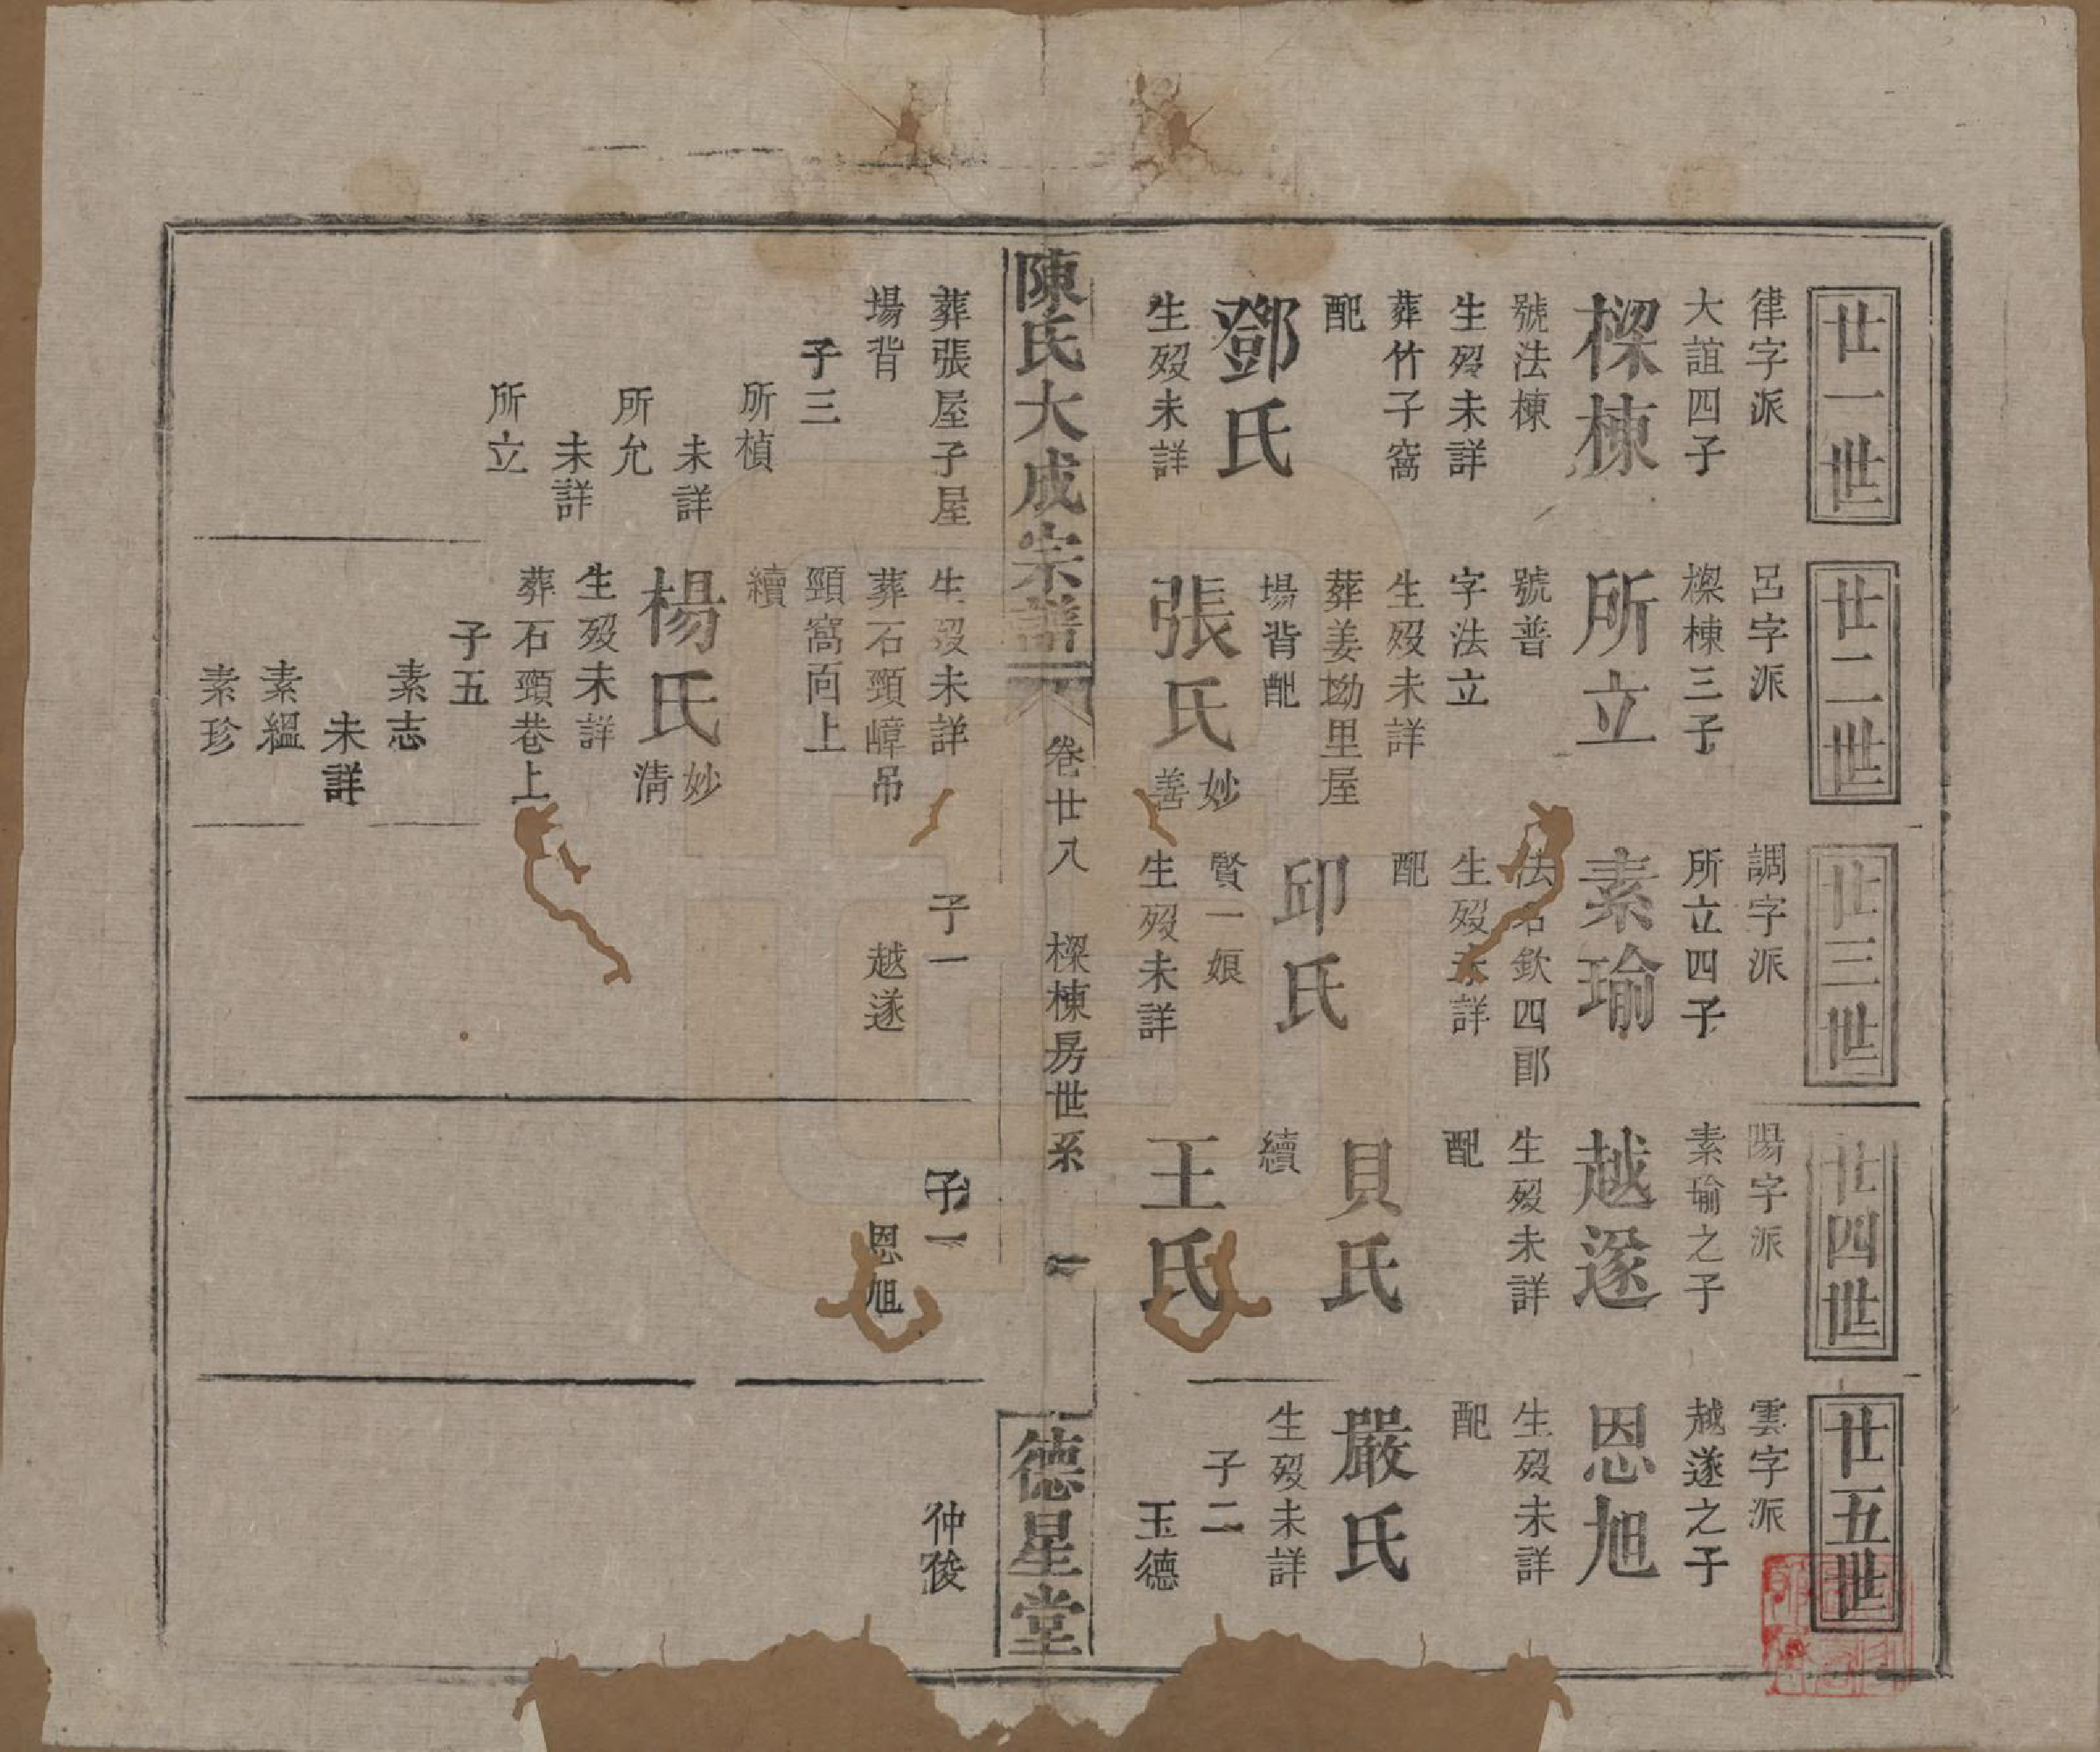 廿一世
律字派
大誼四子
樑棟
號法棟
生歿未詳
葬竹子窩
配
鄧氏
生歿未詳
葬張屋子屋
場背
子三
所楨
未詳
所允
未詳
所立
廿二世
呂字派
樑棟三子
所立
號普
字法立
生歿未詳
葬姜坳里屋
場背配
張氏妙善
生歿未詳
葬石頸嶂吊
頸窩向上
續
楊氏妙清
生歿未詳
葬石頸巷上
子五
素志
未詳
素縕
素珍
廿三世
調字派
所立四子
素瑜
法名欽四郎
生歿未詳
配
邱氏
賢一娘
生歿未詳
子一
越遂
廿四世
陽字派
素瑜之子
越遂
生歿未詳
配
貝氏
續
王氏
子一
恩旭
廿五世
雲字派
越遂之子
恩旭
生歿未詳
配
嚴氏
生歿未詳
子二
玉德
仲俊
陳氏大成宗譜
卷廿八
樑棟房世系
一
德星堂